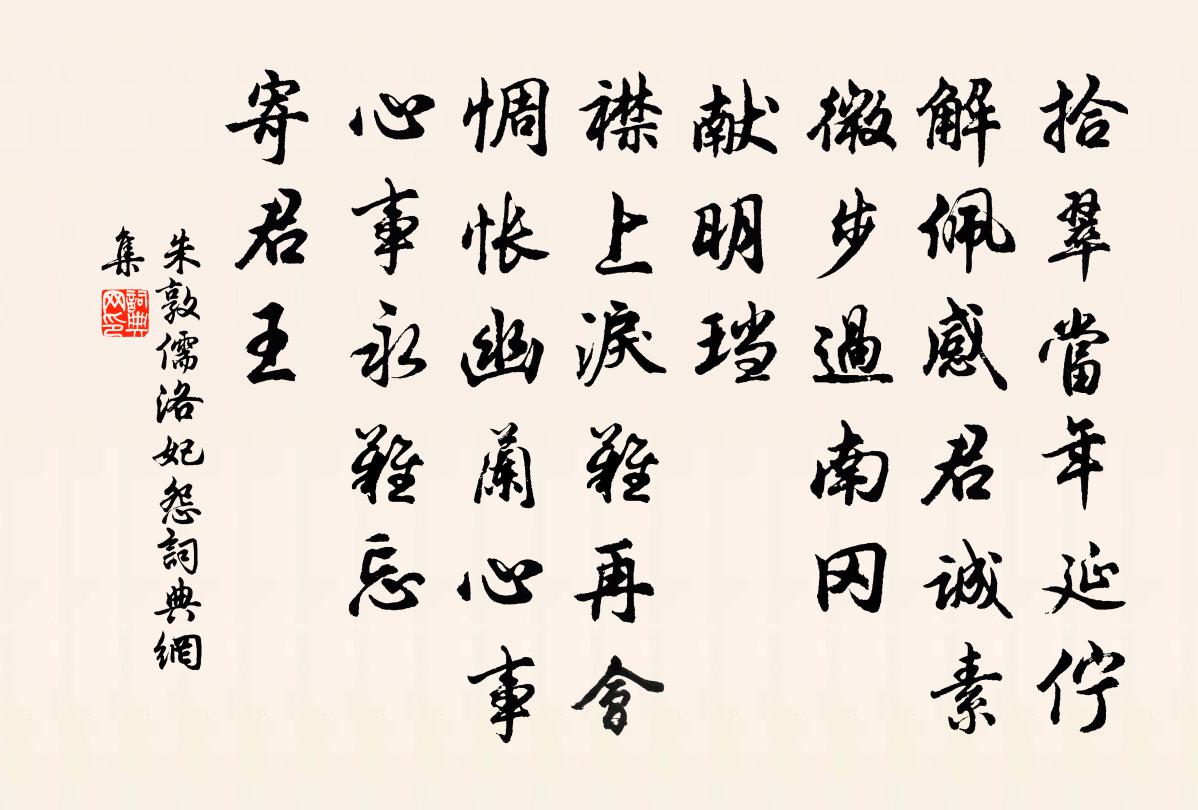 拾翠當年延佇
解佩感君誠素
微步過南冈
献明珰
襟上淚難再會
惆怅幽蘭心事
心事永難忘
寄君王
朱敦儒洛妃怨詞典網
集
詞典
网印